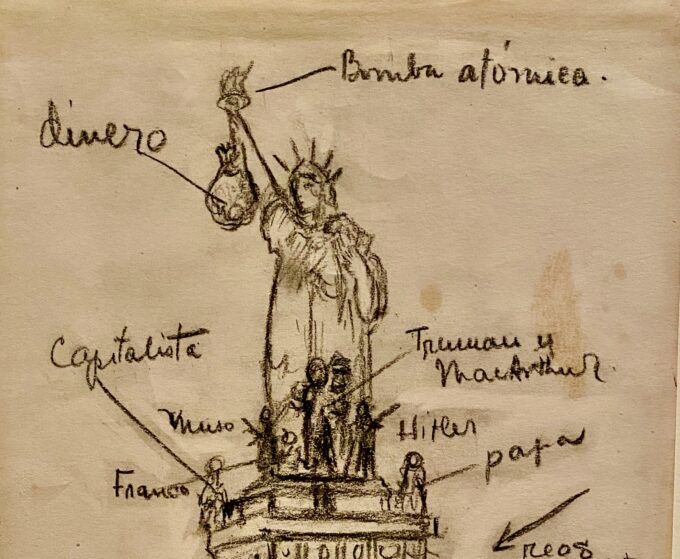 Bomba atómica.
dinero
Capitalista
Truman y
MacArthur.
Muso
Hitler
Franco
papa
reos